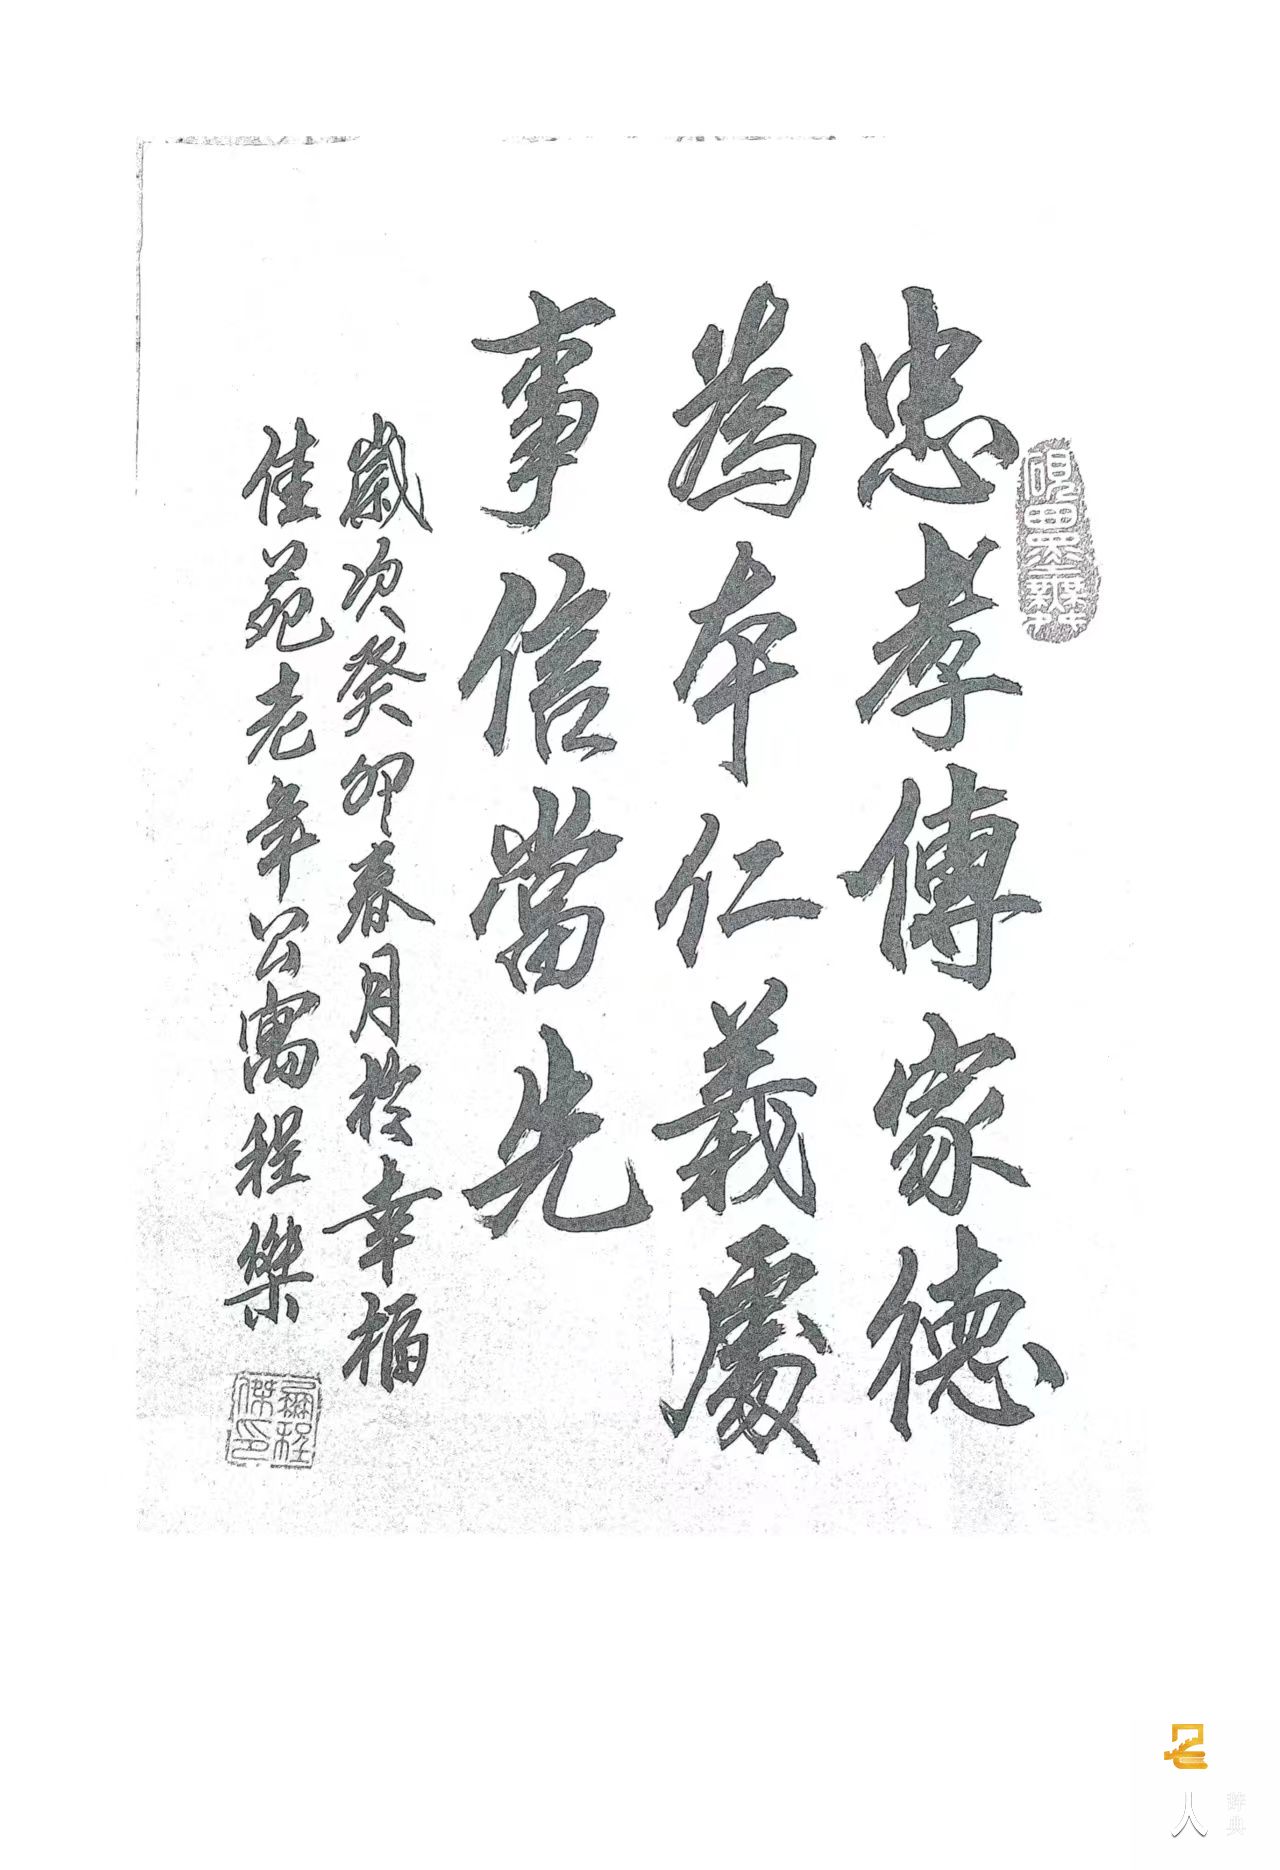 忠孝傳家德
為本仁義處
事信當先
歲次癸卯春月於幸福
佳苑老年公寓程傑
程傑印
人
辞典